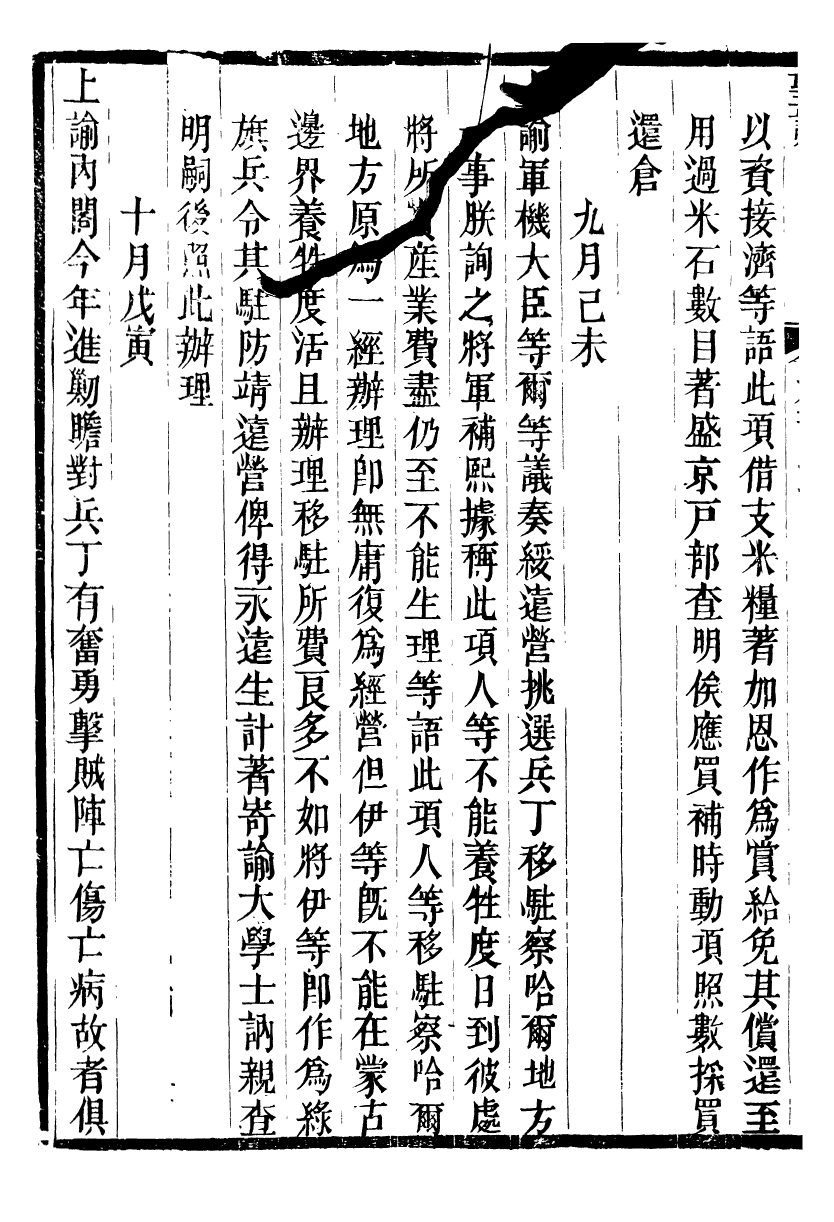 以資接濟等語此項借支米糧著加恩作爲賞給免其償還至
用過米石數目著盛京戸部查明俟應買補時動項照數採買
還倉
九月己未
諭軍機大臣等爾等議奏綏遠營挑選兵丁移駐察哈爾地方
事朕詢之將軍補熙據稱此項人等不能養牲度日到彼處
將所產業費盡仍至不能生理等語此項人等移駐察哈爾
地方原爲一經辦理卽無庸復爲經營但伊等旣不能在蒙古
邊界養牲度活且辦理移駐所費良多不如將伊等卽作爲綠
旗兵令其駐防靖遠營俾得永遠生計著寄諭大學士訥親查
明嗣後照此辦理
十月戊寅
上諭內閣今年進勦瞻對兵丁有奮勇擊賊陣亡傷亡病故者俱